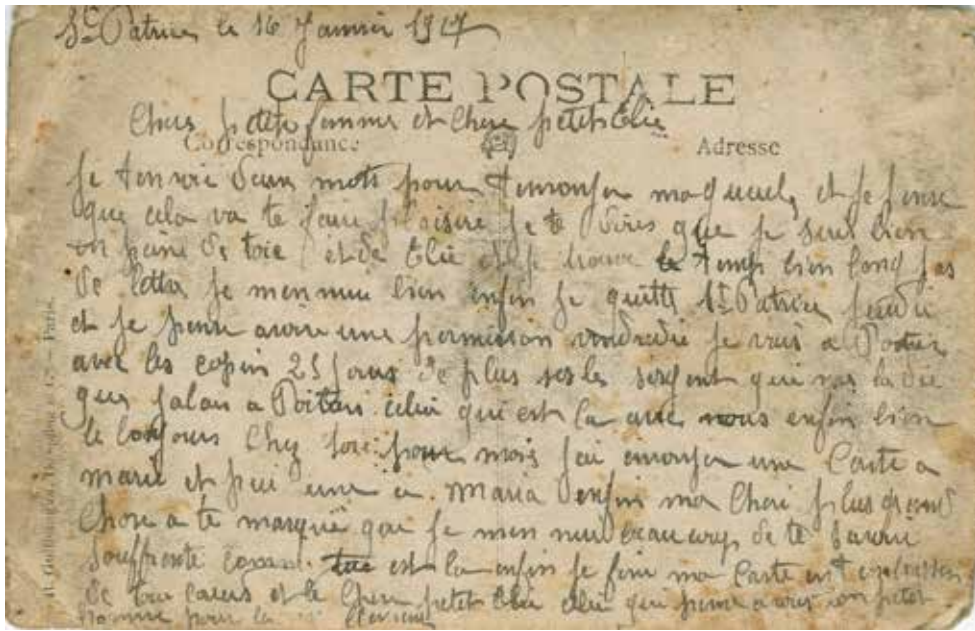 St Patrice le 16 Janvier 1917
CARTE POSTALE
Chere petite femme et Chere petit Elie
Correspondance
Adresse
Je tenvoie deux mots pour tenvoyer ma et je pense
que cela va te faire plaisire je te dires que je bien
en peine de toie et de Elie et je trouve le temp bien long pas
de lettre je mennuie bien enfin je quitte St Patrice jeudie
et je pense avoire une permission vendredie je vais a
avec les copin 25 jours de plus les sergent qui la die
que jalais a celui qui est la avec nous enfin bien
le bonjours Chez toie pour mois jai envoyer une Carte a
marie et pui une a maria enfin ma Cheri plus grand
Chose a te marquè que je men beaucoup de te
Souffrente est la enfin je finie ma Carte
de tou et le Chere petit Elie qui pense a son petit
homme pour la vie
Paris